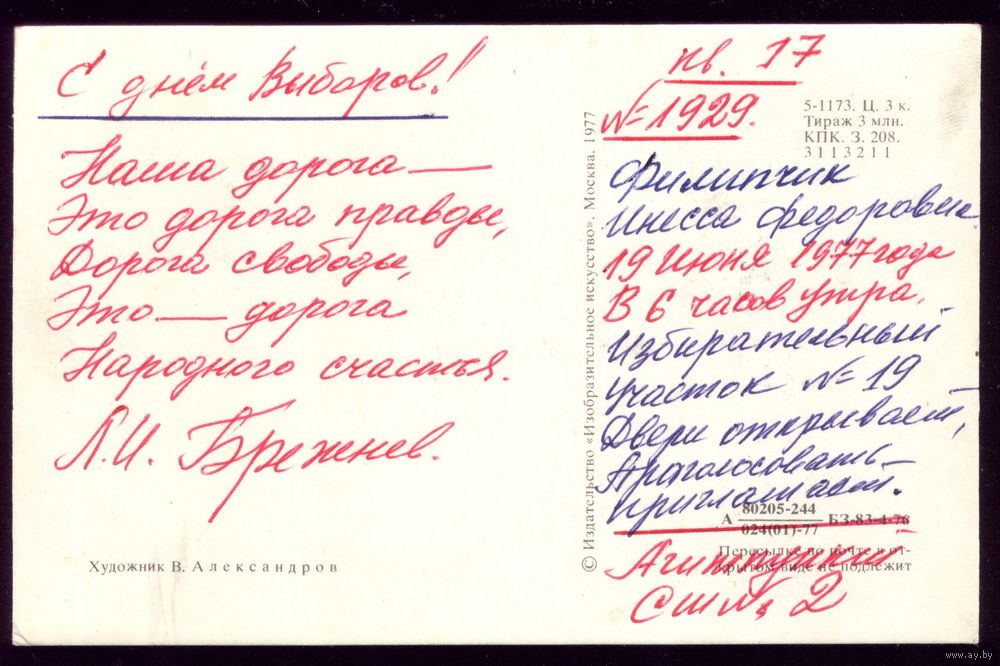 С днём Выборов!
Наша дорога —
Это дорога правды,
Дорога свободы,
Это — дорога
Народного счастья.
Л.И. Брежнев.
Художник В. Александров
© Издательство «Изобразительное искусство». Москва. 1977
кв. 17
№ 1929.
5-1173. Ц. 3 к.
Тираж 3 млн.
КПК. З. 208.
3113211
Филипчик
Инесса Федоровна
19 Июня 1977 года
В 6 часов утра.
Избирательный
участок № 19 —
Двери открывает,
Проголосовать —
приглашает.
А 80205-244 БЗ-83-4-76
024(01)-77
Пересылке по почте в от-
крытом виде не подлежит
СШ № 2
www.ay.by